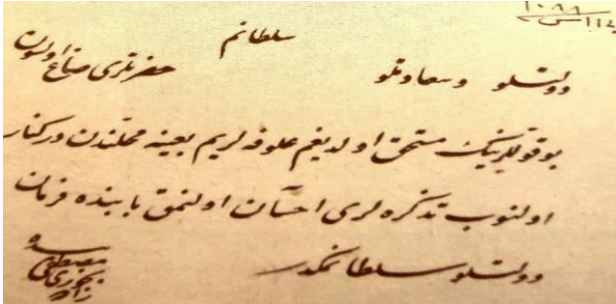 سلطانم
دولتلو و سعادتلو حضرتلری صاغ اولسون
بو قوللرینك مستحق اولدیغم علوفه لریم بعینه محلندن درکنار
اولنوب تذکره لری احسان اولنمق بابنده فرمان
دولتلو سلطانمکدر
بنده
مصطفی